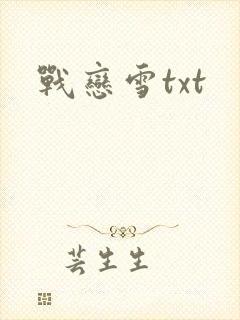 戰戀雪txt
芸生生